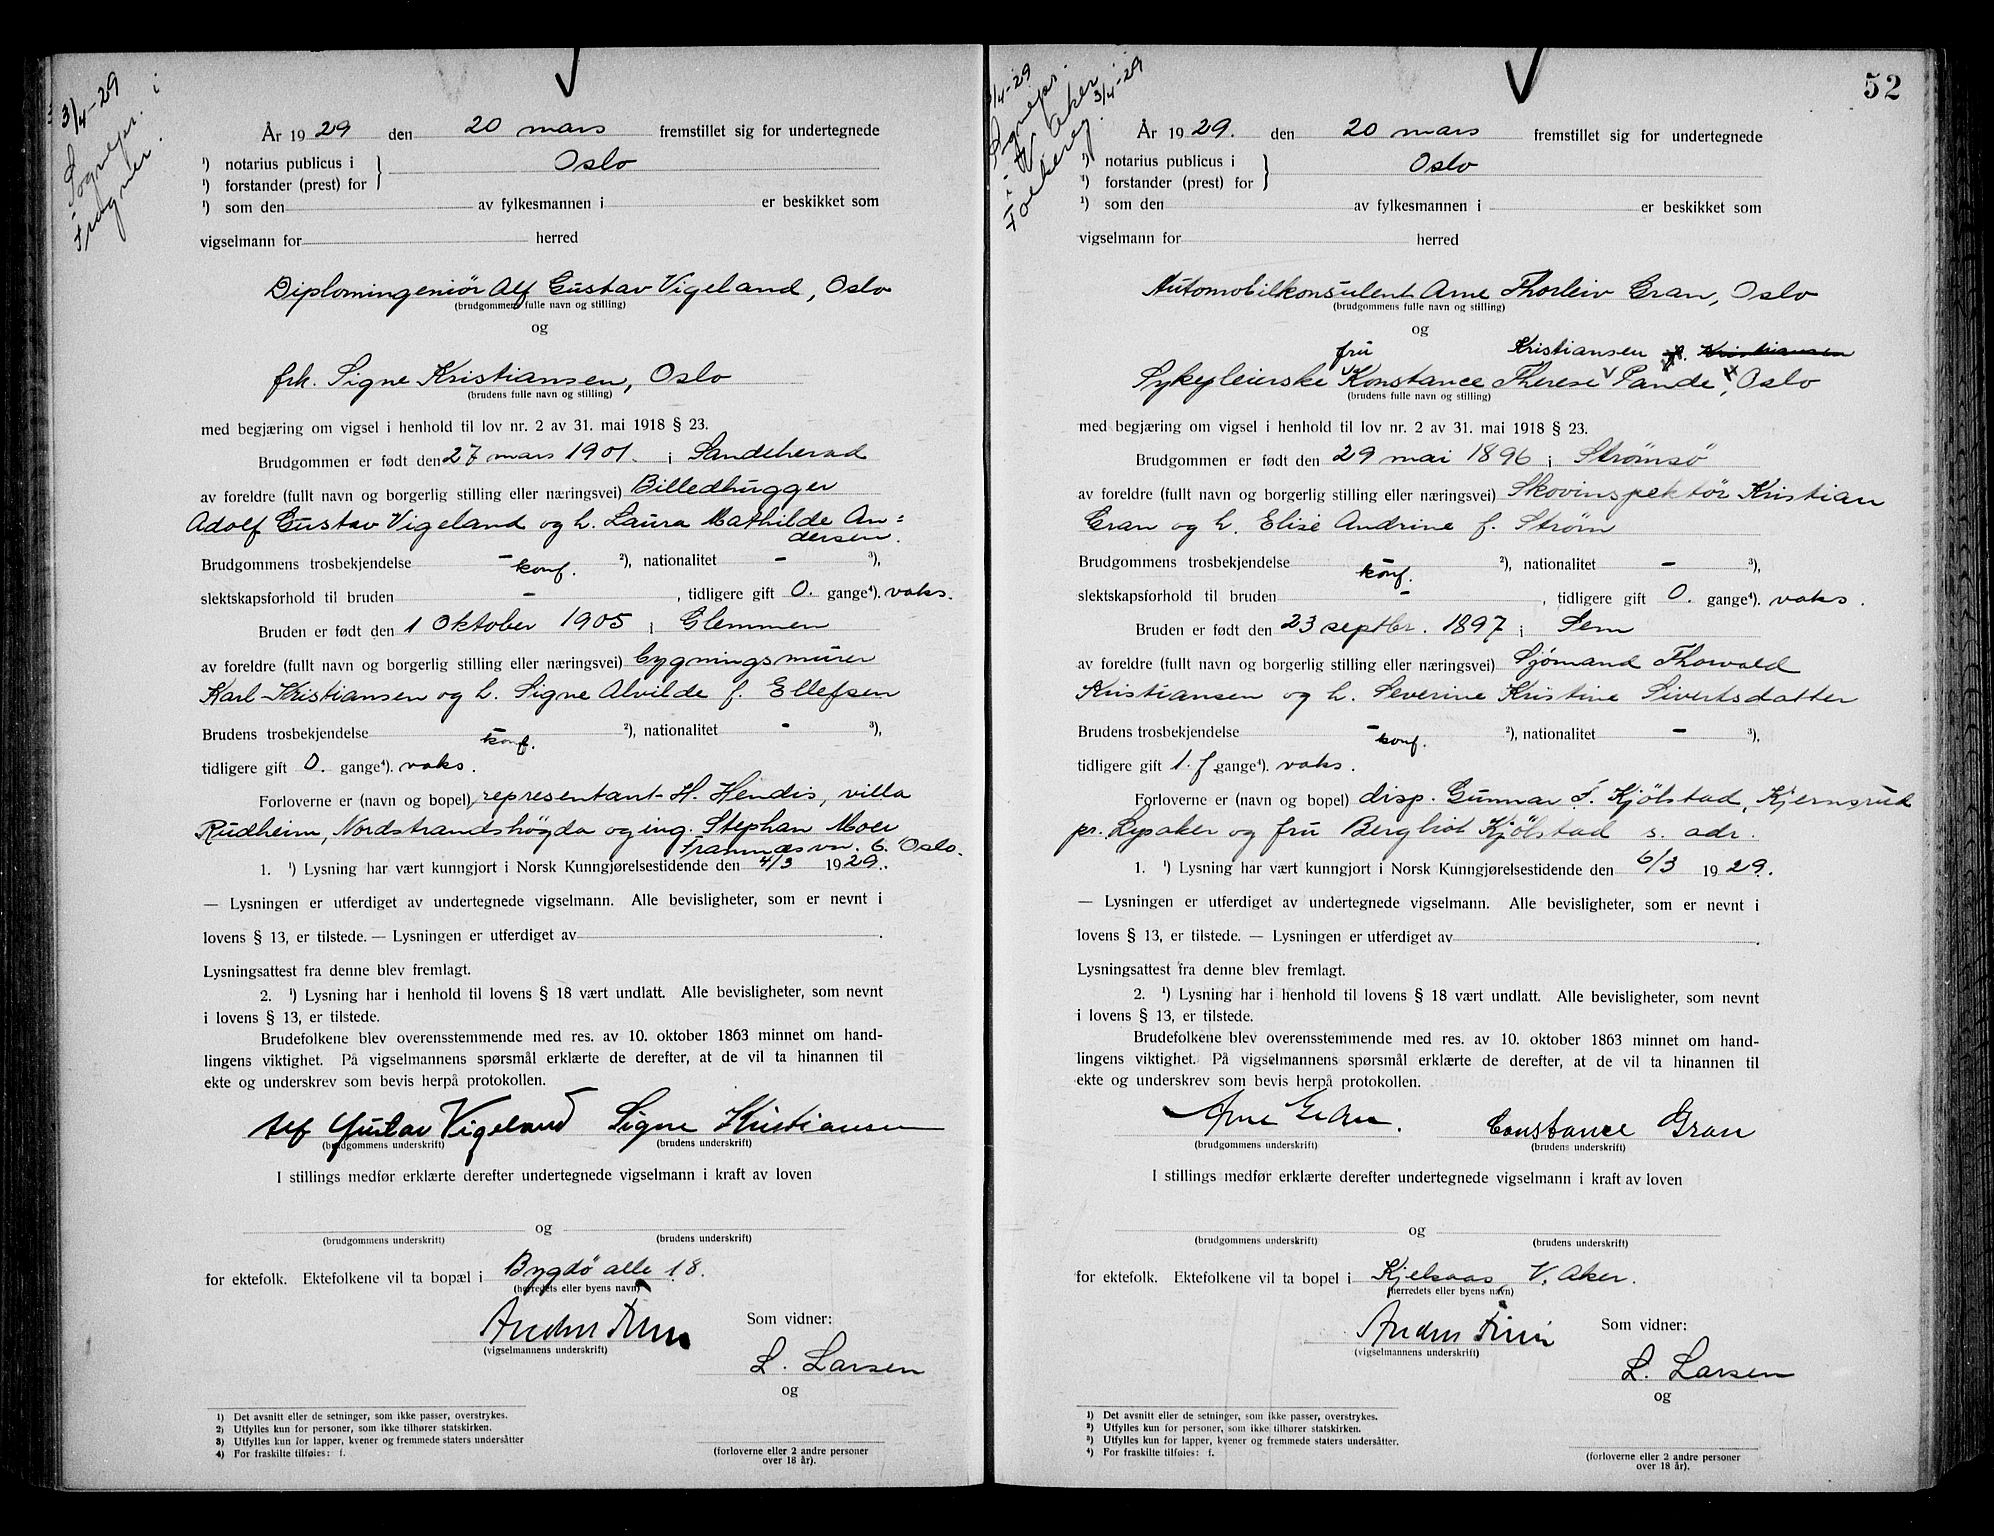 3/4-29
Sognepr. i
Frogner.
År 1929 den 20 mars fremstillet sig for undertegnede
¹) notarius publicus i } Oslo
¹) forstander (prest) for
¹) som den av fylkesmannen i er beskikket som
vigselmann for herred
Diplomingeniör Alf Gustav Vigeland, Oslo
(brudgommens fulle navn og stilling)
og
frk. Signe Kristiansen, Oslo
(brudens fulle navn og stilling)
med begjæring om vigsel i henhold til lov nr. 2 av 31. mai 1918 § 23.
Brudgommen er født den 27 mars 1901. i Sandeherad
av foreldre (fullt navn og borgerlig stilling eller næringsvei) Billedhugger
Adolf Gustav Vigeland og h. Laura Mathilde An=
dersen.
Brudgommens trosbekjendelse - konf. ²), nationalitet - ³),
slektskapsforhold til bruden - , tidligere gift 0. gange⁴). vaks.
Bruden er født den 1 Oktober 1905 i Glemmen
av foreldre (fullt navn og borgerlig stilling eller næringsvei) bygningsmurer
Karl Kristiansen og h. Signe Alvilde f. Ellefsen
Brudens trosbekjendelse - konf. ²), nationalitet - ³),
tidligere gift 0. gange⁴). vaks.
Forloverne er (navn og bopel), representant H. Hendis, villa
Rudheim, Nordstrandshögda og ing. Stephan Moer
Framnæsvn. 6. Oslo.
1. ¹) Lysning har vært kunngjort i Norsk Kunngjørelsestidende den 4/3 1929.
— Lysningen er utferdiget av undertegnede vigselmann. Alle bevisligheter, som er nevnt i
lovens § 13, er tilstede. — Lysningen er utferdiget av .
Lysningsattest fra denne blev fremlagt.
2. ¹) Lysning har i henhold til lovens § 18 vært undlatt. Alle bevisligheter, som nevnt
i lovens § 13, er tilstede.
Brudefolkene blev overensstemmende med res. av 10. oktober 1863 minnet om hand-
lingens viktighet. På vigselmannens spørsmål erklærte de derefter, at de vil ta hinannen til
ekte og underskrev som bevis herpå protokollen.
Alf Gustav Vigeland Signe Kristiansen
(brudgommens underskrift) (brudens underskrift)
I stillings medfør erklærte derefter undertegnede vigselmann i kraft av loven
og
(brudgommens underskrift) (brudens underskrift)
for ektefolk. Ektefolkene vil ta bopæl i Bygdö alle 18.
(herredets eller byens navn)
Som vidner:
(vigselmannens underskrift)
L. Larsen
og
1) Det avsnitt eller de setninger, som ikke passer, overstrykes.
2) Utfylles kun for personer, som ikke tilhører statskirken.
3) Utfylles kun for lapper, kvener og fremmede staters undersåtter
4) For fraskilte tilføies: f.
(forloverne eller 2 andre personer
over 18 år).
52
3/4-29
Sognepr.
i V Aker
3/4-29
År 1929. den 20 mars fremstillet sig for undertegnede
¹) notarius publicus i } Oslo
¹) forstander (prest) for
¹) som den av fylkesmannen i er beskikket som
vigselmann for herred
Automobilkonsulent Arne Thorleiv Gran, Oslo
(brudgommens fulle navn og stilling)
og
fru Kristiansen f. Kristiansen
Sykepleierske Konstance Therese Pande, Oslo
(brudens fulle navn og stilling)
med begjæring om vigsel i henhold til lov nr. 2 av 31. mai 1918 § 23.
Brudgommen er født den 29 mai 1896 i Strömsö
av foreldre (fullt navn og borgerlig stilling eller næringsvei) Skovinspektör Kristian
Gran og h. Elise Andrine f. Ström
Brudgommens trosbekjendelse - konf. ²), nationalitet - ³),
slektskapsforhold til bruden - , tidligere gift 0. gange⁴). vaks.
Bruden er født den 23 septbr. 1897 i Sem
av foreldre (fullt navn og borgerlig stilling eller næringsvei) Sjömand Thorvald
Kristiansen og h. Severine Kristine Sivertsdatter
Brudens trosbekjendelse - konf. ²), nationalitet - ³),
tidligere gift 1. f. gange⁴). vaks.
Forloverne er (navn og bopel) disp. Gunnar F. Kjölstad, Kjernsrud
pr. Lysaker og fru Bergliot Kjölstad s. adr.
1. ¹) Lysning har vært kunngjort i Norsk Kunngjørelsestidende den 6/3 1929.
— Lysningen er utferdiget av undertegnede vigselmann. Alle bevisligheter, som er nevnt i
lovens § 13, er tilstede. — Lysningen er utferdiget av .
Lysningsattest fra denne blev fremlagt.
2. ¹) Lysning har i henhold til lovens § 18 vært undlatt. Alle bevisligheter, som nevnt
i lovens § 13, er tilstede.
Brudefolkene blev overensstemmende med res. av 10. oktober 1863 minnet om hand-
lingens viktighet. På vigselmannens spørsmål erklærte de derefter, at de vil ta hinannen til
ekte og underskrev som bevis herpå protokollen.
Arne Gran. Constance Gran
(brudgommens underskrift) (brudens underskrift)
I stillings medfør erklærte derefter undertegnede vigselmann i kraft av loven
og
(brudgommens underskrift) (brudens underskrift)
for ektefolk. Ektefolkene vil ta bopel i Kjelsaas, V. Aker.
(herredets eller byens navn)
Som vidner:
(vigselmannens underskrift)
L. Larsen
og
1) Det avsnitt eller de setninger, som ikke passer, overstrykes.
2) Utfylles kun for personer, som ikke tilhører statskirken.
3) Utfylles kun for lapper, kvener og fremmede staters undersåtter.
4) For fraskilte tilføies: f.
(forloverne eller 2 andre personer
over 18 år).